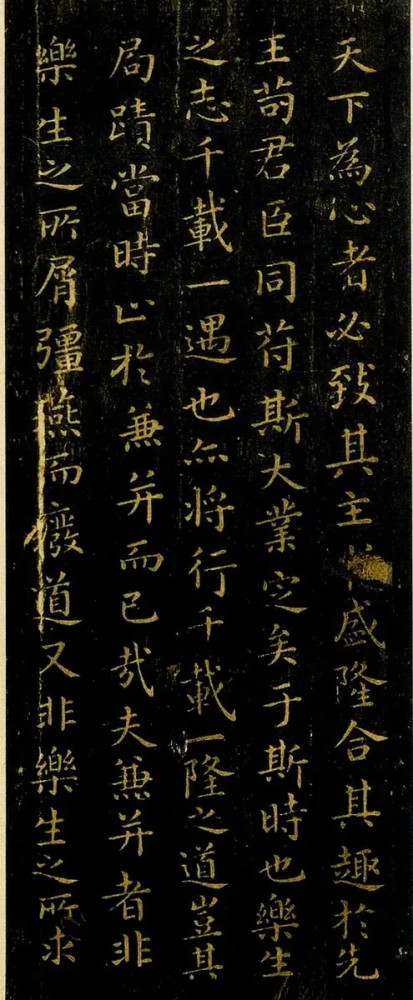 天下為心者必致其主盛隆合其趣於先
王苟君臣同苻斯大業定矣于斯時也樂生
之志千載一遇也亦將行千載一隆之道豈其
局蹟當時止於兼并而已哉夫兼并者非
樂生之所屑彊燕而廢道又非樂生之所求